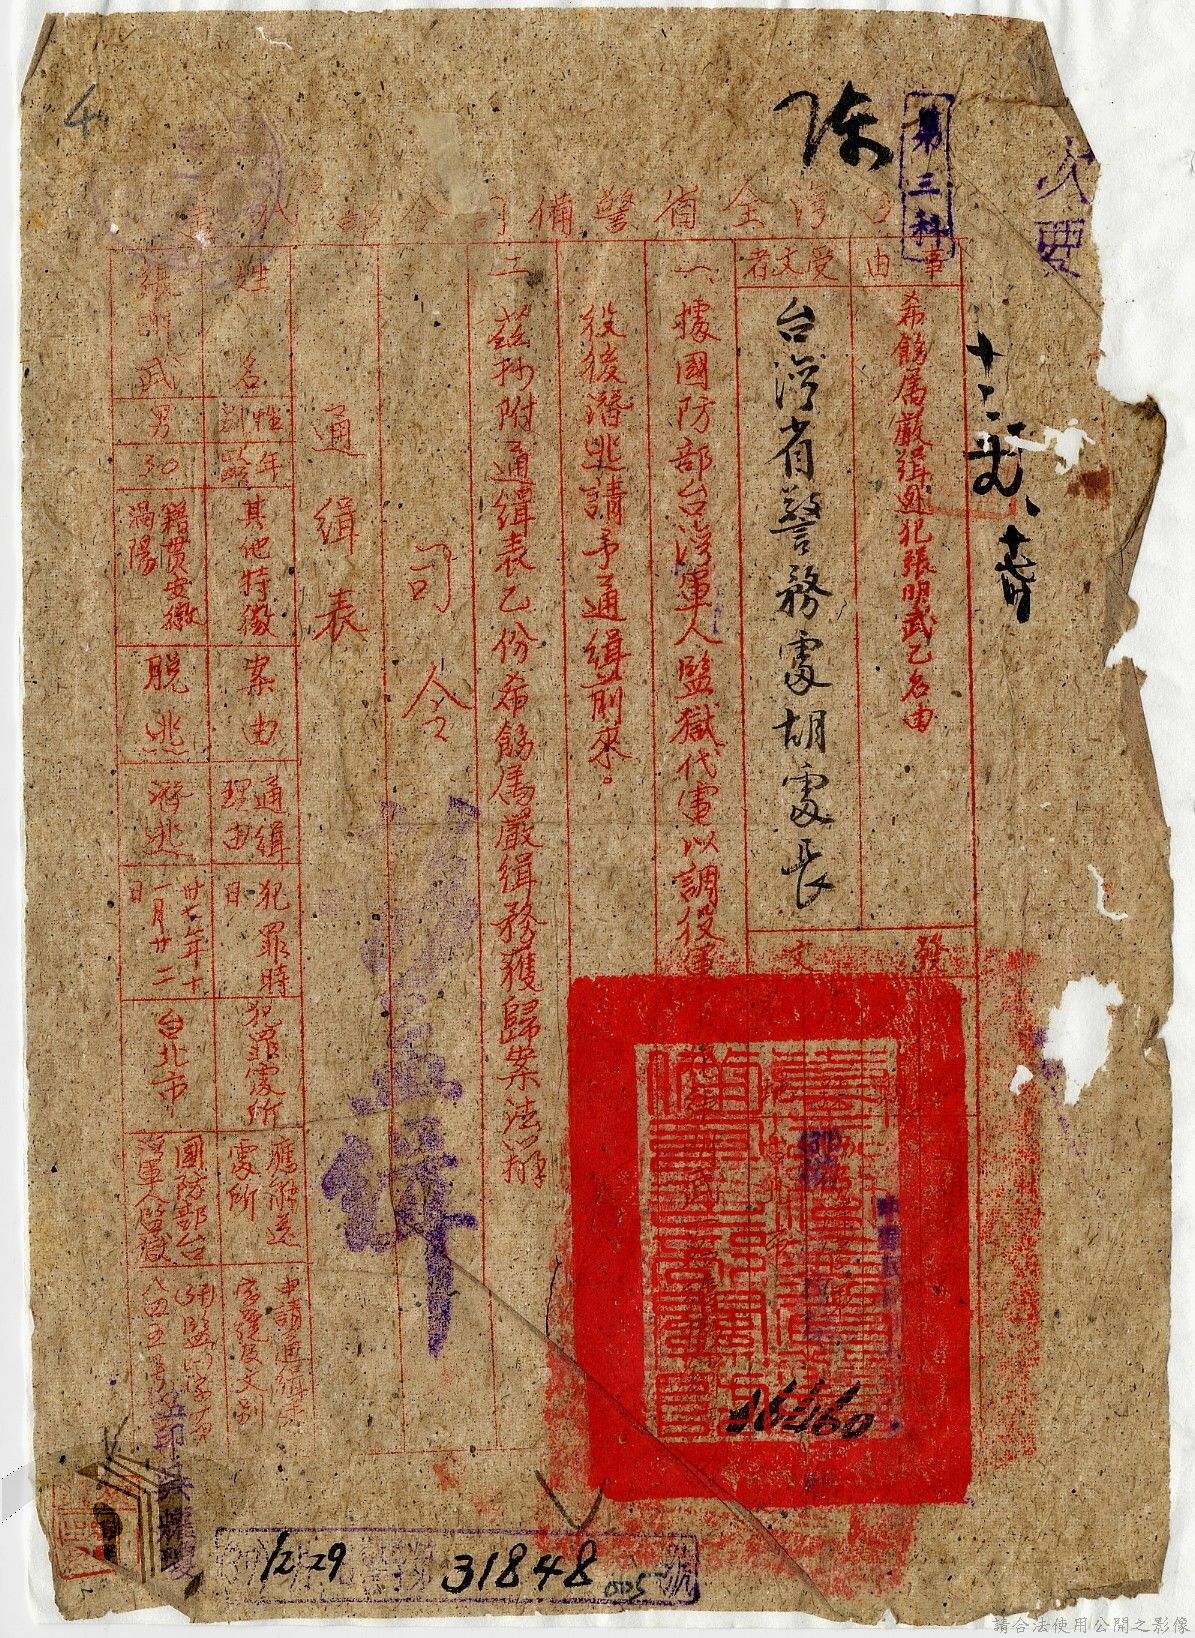 陈
第三科
次要
台灣全省警備司令部代電
事由
希飭屬嚴緝逃犯張明武乙名由
受文者
台灣省警務處胡處長
發
文
一、據國防部台灣軍人監獄代電以調役軍
役後潛逃請予通緝前來。
二、茲抄附通緝表乙份希飭屬嚴緝務獲歸案法辦
司令
通緝表
姓名
性別
年齡
其他特徵
案由
通緝理由
犯罪時日
犯罪處所
應解送處所
張明武
男
30
籍貫安徽渦陽
脫逃
潛逃
卅七年十一月廿二日
台北市
國防部台灣軍人監獄
16460
12 29
31848
005
號
請合法使用公開之影像